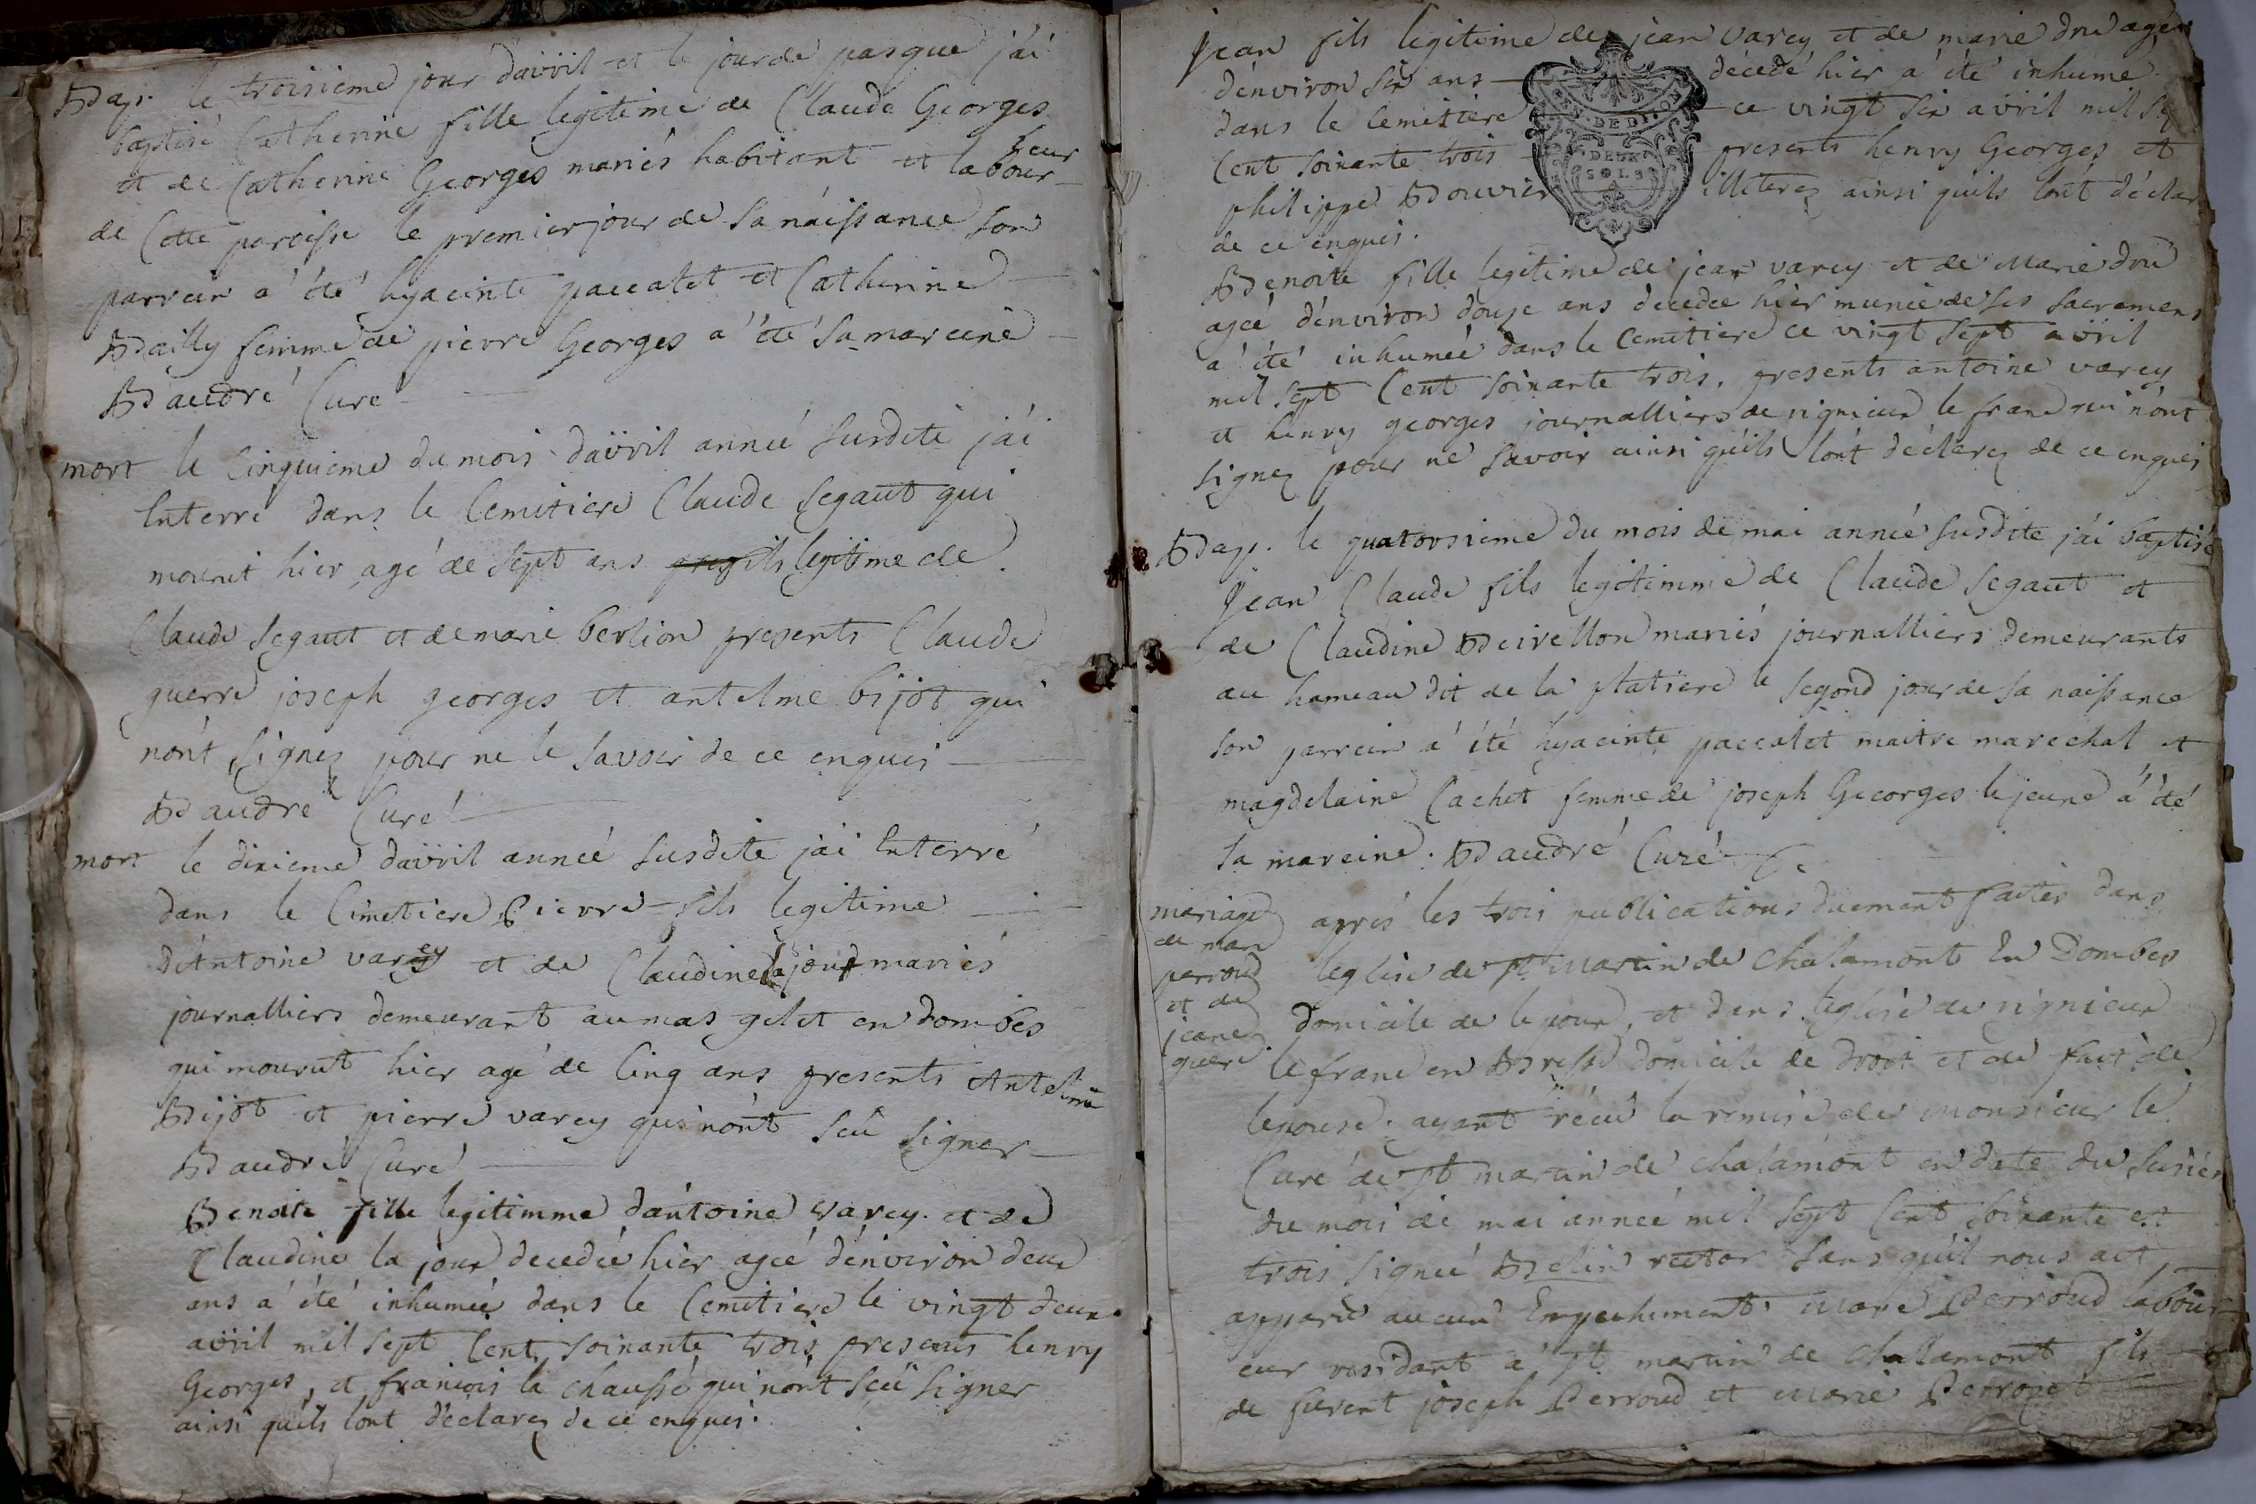 Bap. le troisieme jour davril et le jour de pasque j'ai
baptisé Catherine fille legitime de Claude Georges
et de Catherine Georges mariés habitant et labour-
heur
de Cette paroisse le premier jour de sa naissance son
parrein a été hyacinte paccalet et Catherine
Bailly femme de pierre Georges a été sa marreine
Baudré Curé
mort le Cinquieme du mois davril année susdite j'ai
Enterré dans le Cemitiere Claude segaut qui
mourut hier agé de sept ans fils legitime de
Claude segaut et de marie berlion presents Claude
guerre joseph georges et antelme bijot qui
n'ont signez pour ne le savoir de ce enquis
Baudré Curé
mort le dixieme davril année susdite j'ai Enterré
dans le Cimetiere Pierre fils legitime
d'Antoine varey et de Claudine la joux mariés
journalliers demeurant au mas gelet en dombes
qui mourut hier agé de Cinq ans presents Antelme
Bijot et pierre varey qui n'ont sçû signer
Baudré Curé
Benoite fille legitimme d'antoine varey et de
Claudine la joux decedée hier agée d'environ deux
ans a été inhumée dans le Cemitiere le vingt deux
avril mil sept Cent soixante trois presents henry
Georges, et francois la chausse qui n'ont sçû signer
ainsi quils l'ont déclarez de ce enquis.
Jean fils legitime de jean varey et de marie dru agé
d'environ six ans décedé hier a été inhumé
dans le Cemitiere ce vingt six avril mil sep
Cent soixante trois presents henry Georges et
philippe Bouvier illiterez ainsi quils l'ont déclar
de ce enquis.
GEN. DE DIJON
DEUX
SOLS
Benoite fille legitime de jean varey et de Marie dru
agée d'environ douze ans decedée hier munie de ses sacremens
a été inhumée dans le Cemitiere ce vingt sept avril
mil sept Cent soixante trois, presents antoine varey
et henry georges journalliers de rignieux le franc qui n'ont
signez pour ne savoir ainsi quils l'ont déclarez de ce enquis
Bap. le quatorsieme du mois de mai année susdite j'ai baptisé
Jean Claude fils legitimme de Claude segaut et
de Claudine mariés journalliers demeurants
au hameau dit de la platiere le segond jour de sa naissance
son parrein a été hyacinte paccalet maitre marechal et
magdelaine Cachet femme de joseph Georges le jeune a été
sa mareine. Baudré Curé
mariage
de marc
perroud
et de
jeane
guere
après les trois publications duement faites dans
leglise de st Martin de Chalamont En Dombes
domicile de lepoux, et dans leglise de rignieux
le franc en Bresse domicile de droit et de fait de
lepouse. ayant récû la remise de monsieur le
Curé de st martin de Chalamont en date du
du mois de mai année mil sept Cent soixante et
trois signée Belin rector sans quil nous ait
apparu aucun Empechement. Marc Perroud labour
eur residant a st martin de Chalamont fils
de furent joseph Perroud et Marie